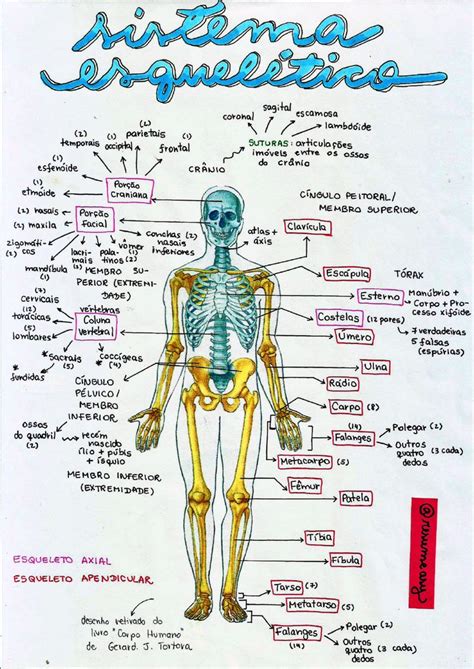 sistema
esquelético
sagital
coronal
escamosa
lambdóide
SUTURAS: articulações
imóveis entre os ossos
do crânio
CRÂNIO
(2)
temporais
(1)
occipital
(2)
parietais
(1)
frontal
(1)
esfenóide
(1)
etmoide
Porção
Craniana
(2) nasais
(2) maxila
Porção
Facial
zigomáti-
(2) cos
lacri-
mais (2)
pala-
tinos (2)
vômer
(1)
conchas (2)
nasais
inferiores
mandíbula
(1)
atlas +
áxis
CÍNGULO PEITORAL/
MEMBRO SUPERIOR
Clavícula
MEMBRO SU-
PERIOR (EXTREMI-
DADE)
Escápula
TÓRAX
Esterno
Manúbrio +
Corpo + Pro-
cesso xifóide
Costelas
(12 pares)
7 verdadeiras
5 falsas
(espúrias)
(7)
cervicais
(12)
torácicas
(5)
lombares
vértebras
Coluna
Vertebral
* Sacrais
(5)
* coccígeas
(4)
* fundidas
Úmero
Ulna
Rádio
Carpo (8)
(14)
Falanges
Polegar (2)
Outros (3 cada)
quatro
dedos
Metacarpo (5)
CÍNGULO
PÉLVICO/
MEMBRO
INFERIOR
ossos
do quadril
(2)
recém
nascido
ílio + púbis
+ ísquio
MEMBRO INFERIOR
(EXTREMIDADE)
Fêmur
Patela
@resumeavy
Tíbia
Fíbula
ESQUELETO AXIAL
ESQUELETO APENDICULAR
Tarso (7)
Metatarso (5)
Falanges
(14)
Polegar (2)
Outros (3 cada)
quatro
dedos
desenho retirado do
livro "Corpo Humano"
de Gerard. J. Tortora